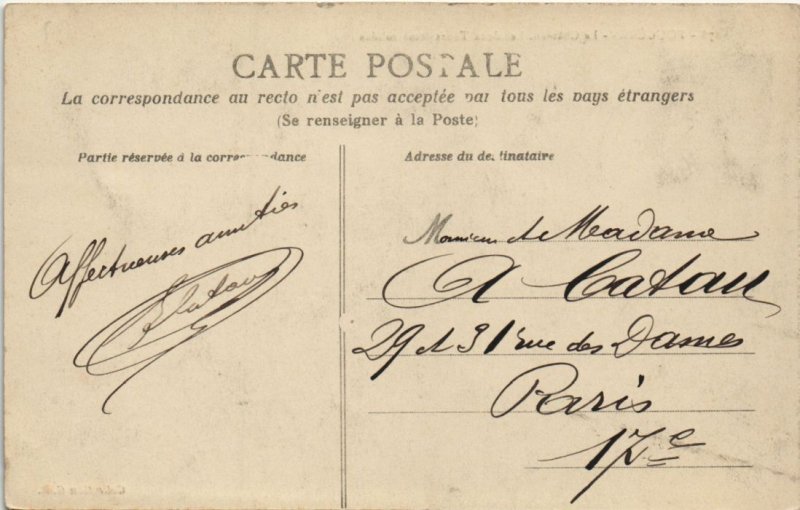 CARTE POSTALE
La correspondance au recto n'est pas acceptée par tous les pays étrangers
(Se renseigner à la Poste)
Partie réservée à la correspondance
Adresse du destinataire
Affectueuses amitiés
Monsieur et Madame
A Catau
29 et 31 rue des Dames
Paris
17e